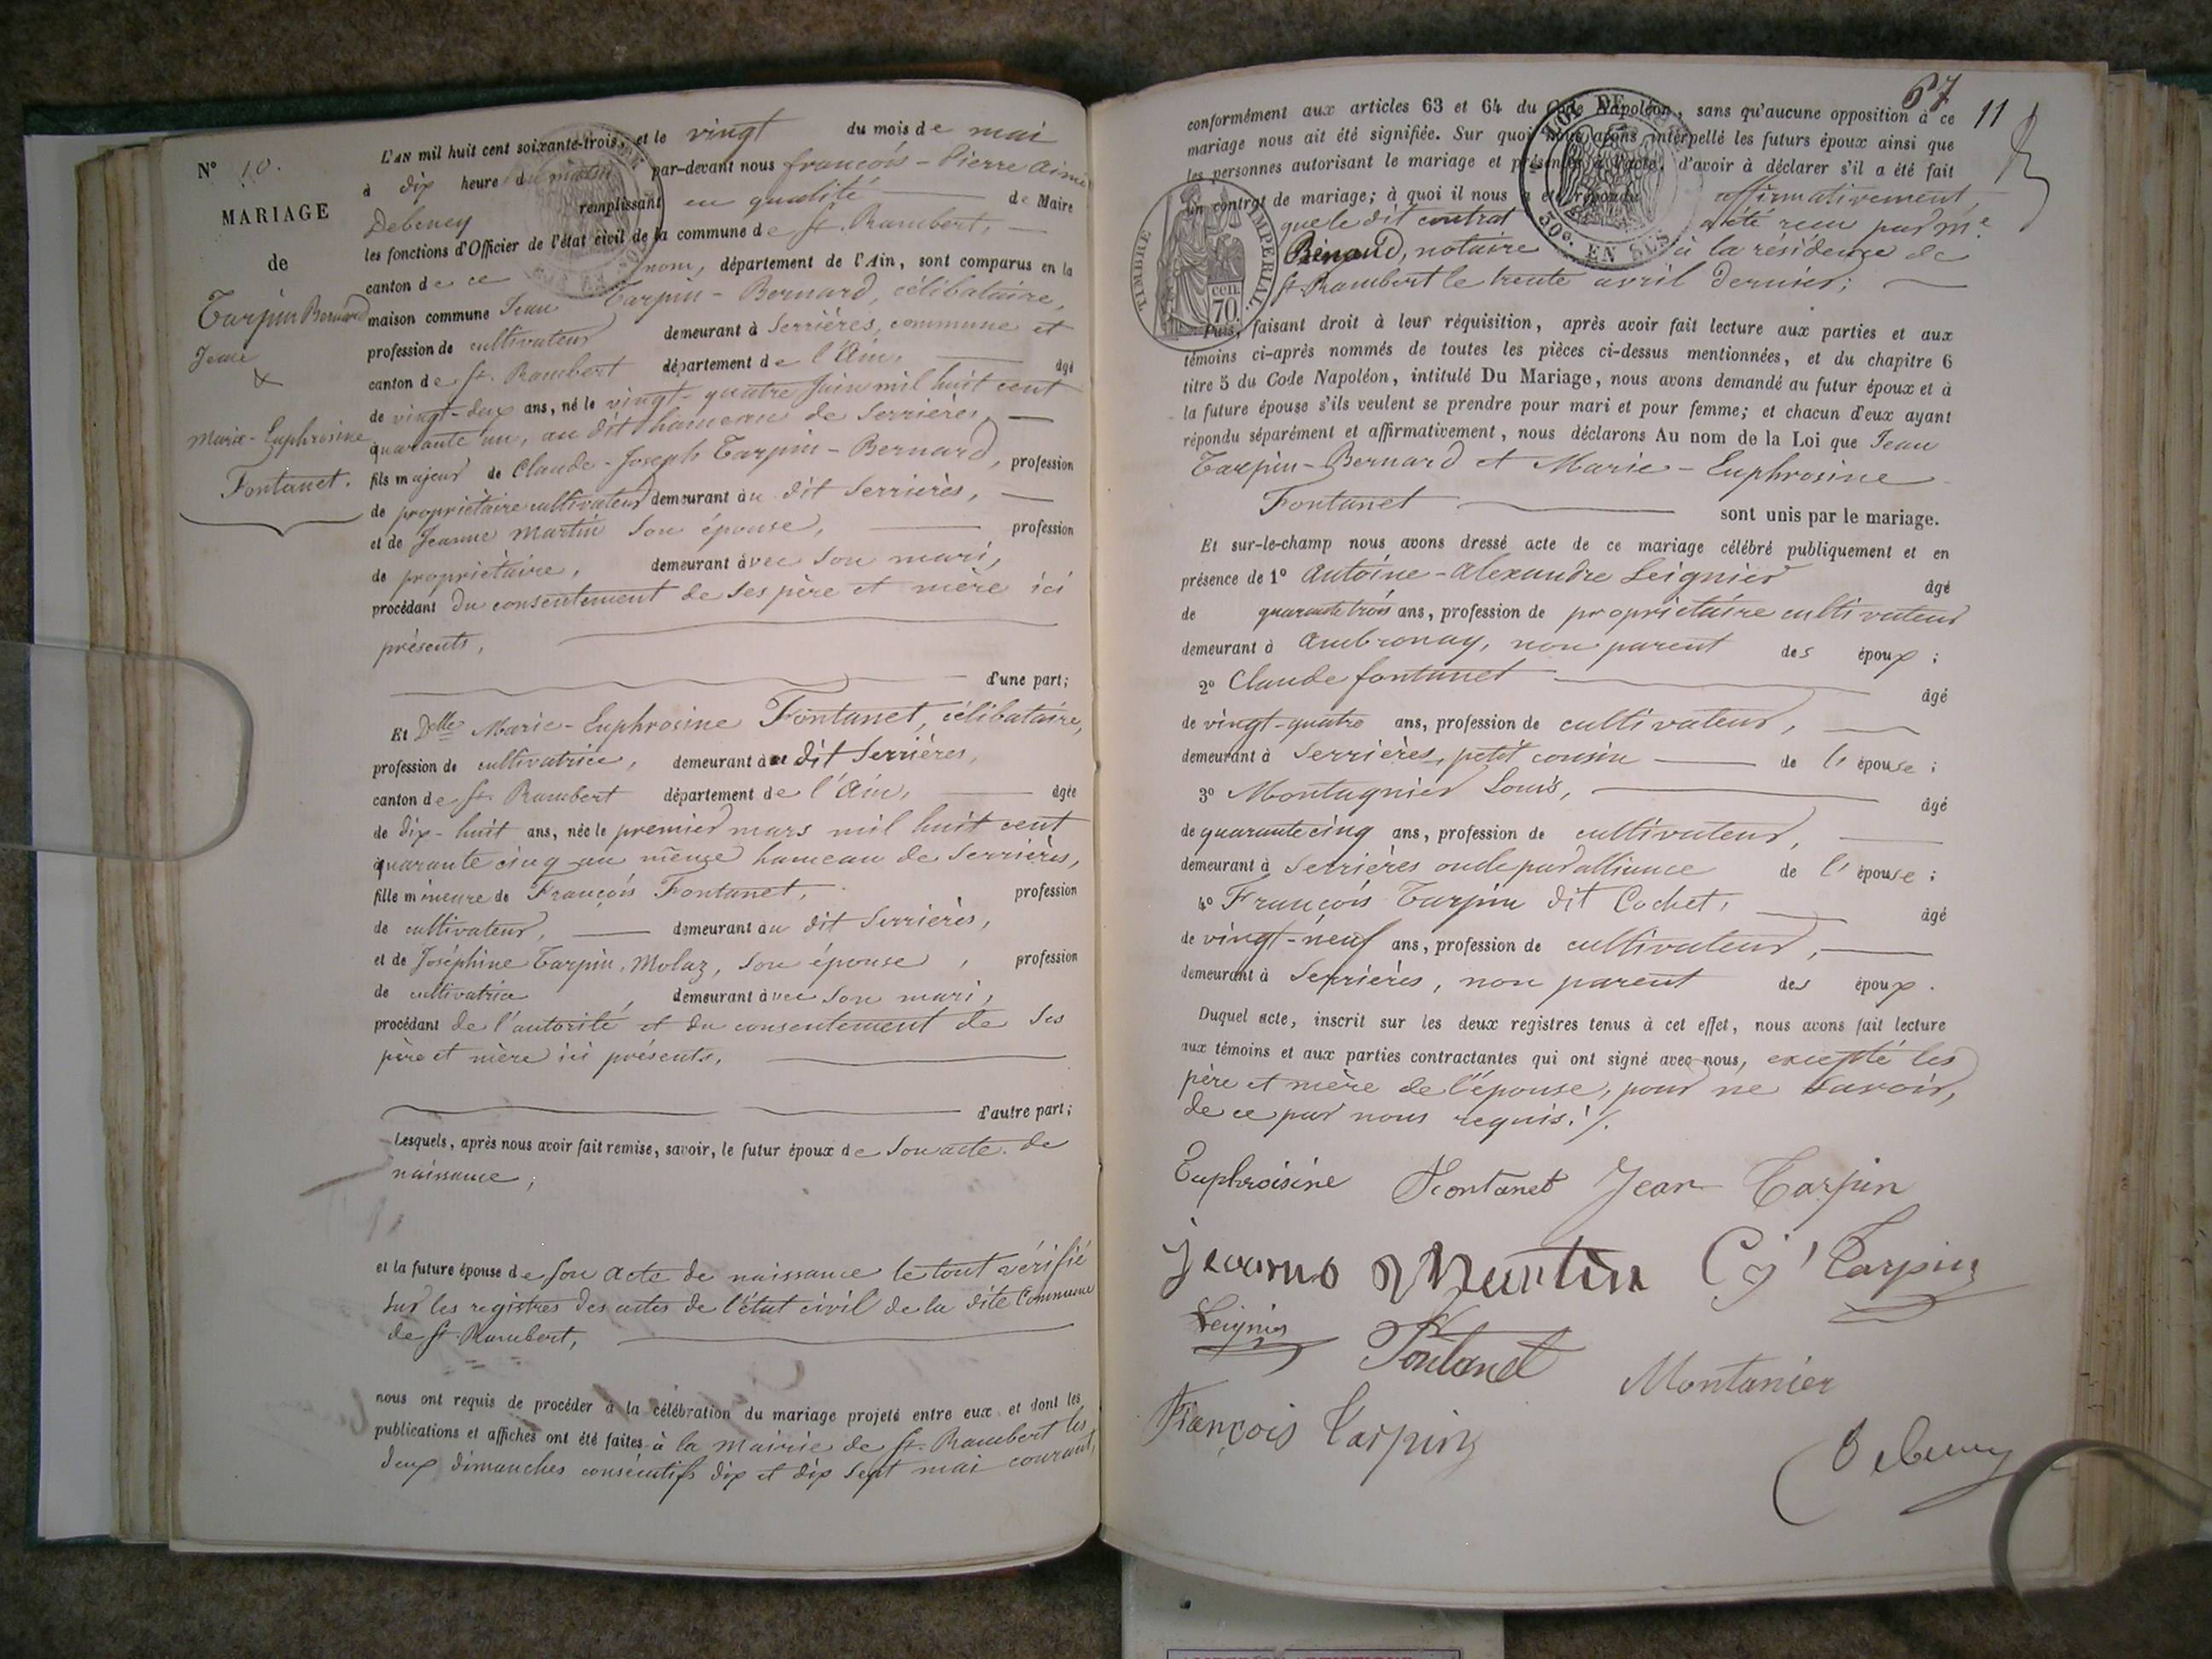 N° 10.
MARIAGE
de
Tarpin Bernard
Jean
&
Marie-Euphrosine
Fontanet.
L'AN mil huit cent soixante-trois, et le vingt du mois de mai
à dix heure du matin par-devant nous françois-Pierre Aimé
Debeney remplissant en qualité de Maire
les fonctions d'Officier de l'état civil de la commune de St. Rambert,
canton de ce nom, département de l'Ain, sont comparus en la
maison commune Jean Tarpin-Bernard, célibataire,
profession de cultivateur demeurant à Serrières, commune et
canton de St. Rambert département de l'Ain, âgé
de vingt-deux ans, né le vingt-quatre Juin mil huit cent
quarante un, au dit hameau de Serrières,
fils majeur de Claude-Joseph Tarpin-Bernard, profession
de propriétaire cultivateur demeurant au dit Serrières,
et de Jeanne Martin son épouse, profession
de propriétaire, demeurant avec son mari,
procédant du consentement de ses père et mère ici
présents,
d'une part;
Et Delle Marie-Euphrosine Fontanet, célibataire,
profession de cultivatrice, demeurant au dit Serrières,
canton de St. Rambert département de l'Ain, âgée
de dix-huit ans, née le premier mars mil huit cent
quarante cinq au même hameau de Serrières,
fille mineure de François Fontanet, profession
de cultivateur, demeurant au dit Serrières,
et de Joséphine Tarpin, Molaz, son épouse, profession
de cultivatrice, demeurant avec son mari,
procédant de l'autorité et du consentement de ses
père et mère ici présents,
d'autre part;
Lesquels, après nous avoir fait remise, savoir, le futur époux de son acte de
naissance;
et la future épouse de son acte de naissance le tout vérifié
sur les registres des actes de l'état civil de la dite Commune
de St. Rambert,
nous ont requis de procéder à la célébration du mariage projeté entre eux et dont les
publications et affiches ont été faites à la mairie de St. Rambert les
deux dimanches consécutifs dix et dix sept mai courant,
67
11
conformément aux articles 63 et 64 du Code Napoléon, sans qu'aucune opposition à ce
mariage nous ait été signifiée. Sur quoi nous avons interpellé les futurs époux ainsi que
les personnes autorisant le mariage et présentes à l'acte, d'avoir à déclarer s'il a été fait
un contrat de mariage; à quoi il nous a été répondu affirmativement,
que le dit contrat a été reçu par Me
Bénaud, notaire à la résidence de
St. Rambert le trente avril dernier;
TIMBRE IMPERIAL
70 cen.
50c. EN SUS
Puis, faisant droit à leur réquisition, après avoir fait lecture aux parties et aux
témoins ci-après nommés de toutes les pièces ci-dessus mentionnées, et du chapitre 6
titre 5 du Code Napoléon, intitulé Du Mariage, nous avons demandé au futur époux et à
la future épouse s'ils veulent se prendre pour mari et pour femme; et chacun d'eux ayant
répondu séparément et affirmativement, nous déclarons Au nom de la Loi que Jean
Tarpin-Bernard et Marie-Euphrosine
Fontanet sont unis par le mariage.
Et sur-le-champ nous avons dressé acte de ce mariage célébré publiquement et en
présence de 1° Antoine-Alexandre Leignier âgé
de quarante trois ans, profession de propriétaire cultivateur
demeurant à Ambronay, non parent des époux;
2° Claude fontanet âgé
de vingt-quatre ans, profession de cultivateur,
demeurant à Serrières, petit cousin de l'épouse;
3° Montagnier Louis, âgé
de quarante cinq ans, profession de cultivateur,
demeurant à Serrières oncle par alliance de l'épouse;
4° François Tarpin dit Cochet, âgé
de vingt-neuf ans, profession de cultivateur,
demeurant à Serrières, non parent des époux.
Duquel acte, inscrit sur les deux registres tenus à cet effet, nous avons fait lecture
aux témoins et aux parties contractantes qui ont signé avec nous, excepté les
père et mère de l'épouse, pour ne savoir,
de ce par nous requis./.
Euphroisine Fontanet Jean Tarpin
Jeanne Martin C j Tarpin
Leignier Fontanet Montanier
François Tarpin
Debeney